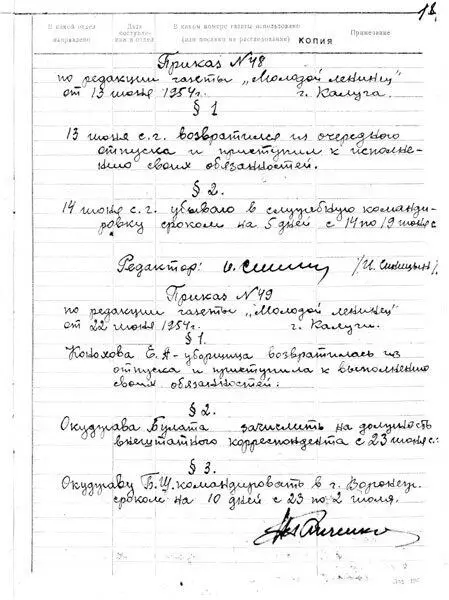 18.
В какой отдел направлено
Дата поступления в отдел
В каком номере газеты использовано (или послано на расследование)
КОПИЯ
Примечание
Приказ №48
по редакции газеты „Молодой ленинец"
от 13 июня 1954г. г. Калуга.
§ 1
13 июня с.г. возвратился из очередного
отпуска и приступил к исполне-
нию своих обязанностей.
§ 2.
14 июня с.г. убываю в служебную команди-
ровку сроком на 5 дней с 14 по 19 июня с
Редактор: /И. Синицын/.
Приказ №49
по редакции газеты „Молодой ленинец"
от 22 июня 1954г. г. Калуги.
§ 1.
Конохова Е.А - уборщица возвратилась из
отпуска и приступила к выполнению
своих обязанностей.
§ 2.
Окуджава Булата зачислить на должность
внештатного корреспондента с 23 июня с.г.
§ 3.
Окуджаву Б.Ш. командировать в г. Воронеж
сроком на 10 дней с 23 по 2 июля.